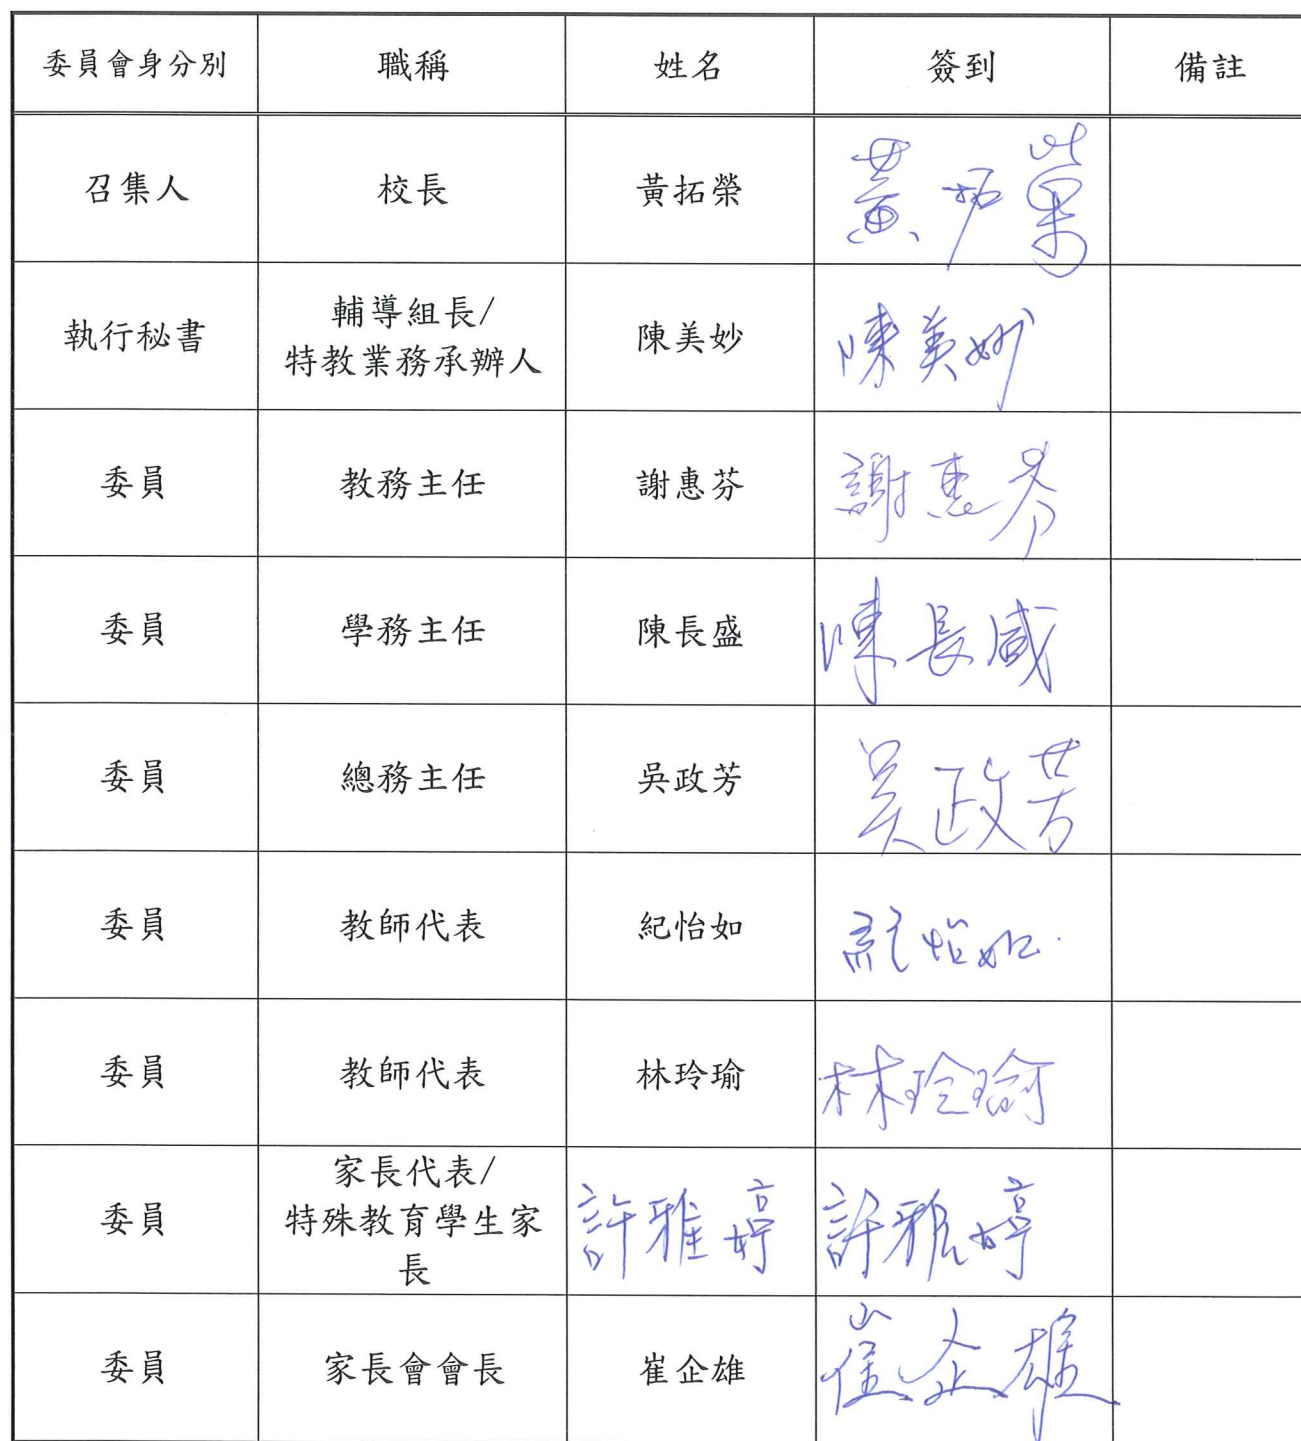 委員會身分別 職稱 姓名 簽到 備註
召集人 校長 黃拓榮 黃拓榮
執行秘書 輔導組長/
特教業務承辦人 陳美妙 陳美妙
委員 教務主任 謝惠芬 謝惠芬
委員 學務主任 陳長盛 陳長盛
委員 總務主任 吳政芳 吳政芳
委員 教師代表 紀怡如 紀怡如
委員 教師代表 林玲瑜 林玲瑜
委員 家長代表/
特殊教育學生家
長 許雅婷 許雅婷
委員 家長會會長 崔企雄 崔企雄